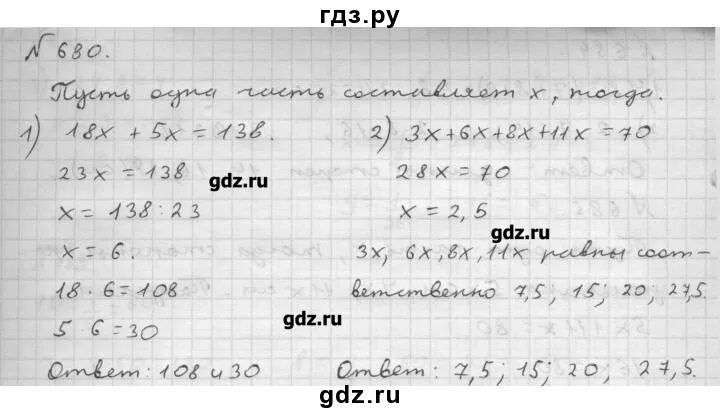 гдз.ру
№ 680.
Пусть одна часть составляет x, тогда.
1) 18x + 5x = 138.
23x = 138
x = 138 : 23
x = 6.
18 · 6 = 108
5 · 6 = 30
Ответ: 108 и 30
2) 3x + 6x + 8x + 11x = 70
28x = 70
x = 2,5
3x, 6x, 8x, 11x равны соот-
ветственно 7,5; 15; 20; 27,5.
Ответ: 7,5; 15; 20; 27,5.
gdz.ru
gdz.ru
gdz.ru
gdz.ru
gdz.ru